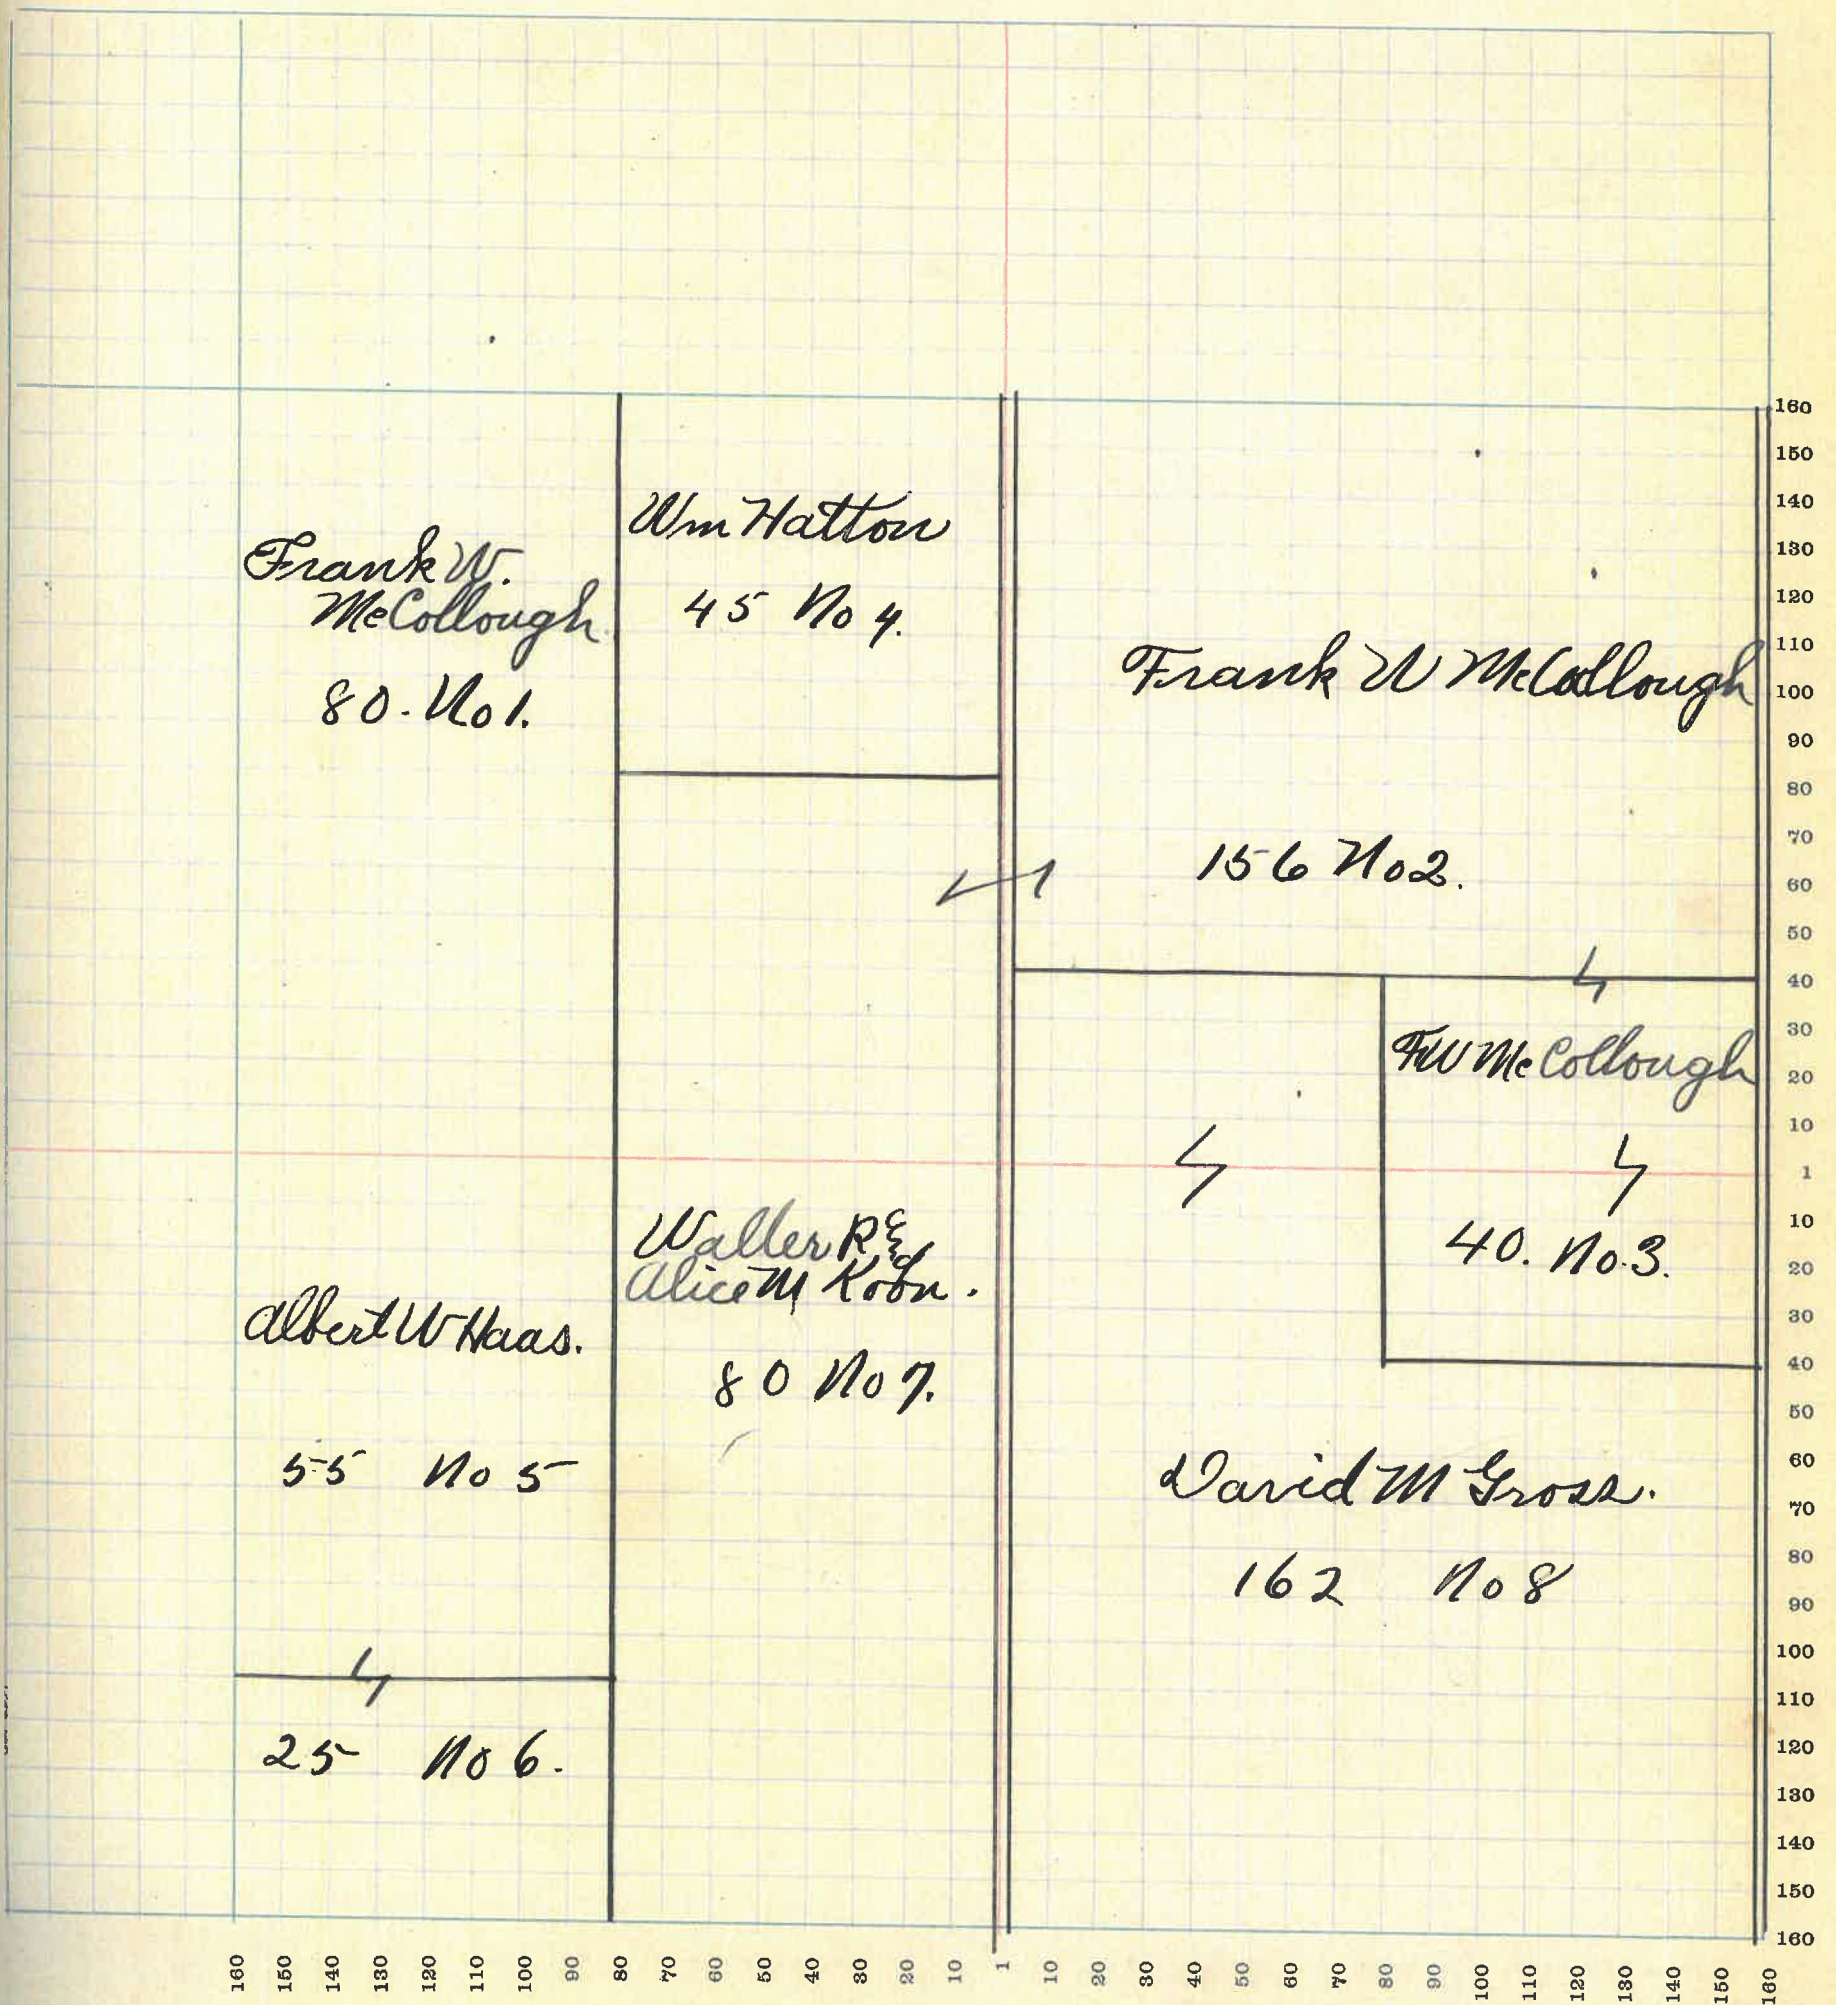 Frank W.
McCollough
80. No 1.
Wm Hatton
45 No 4.
Frank W McCollough
156 No 2.
FW McCollough
40. No. 3.
Albert W Haas.
55 No 5
25 No 6.
Alice M
80 No 7.
David M Gross.
162 No 8
160
150
140
130
120
110
100
90
80
70
60
50
40
30
20
10
1
10
20
30
40
50
60
70
80
90
100
110
120
130
140
150
160
160 150 140 130 120 110 100 90 80 70 60 50 40 30 20 10 1 10 20 30 40 50 60 70 80 90 100 110 120 130 140 150 160